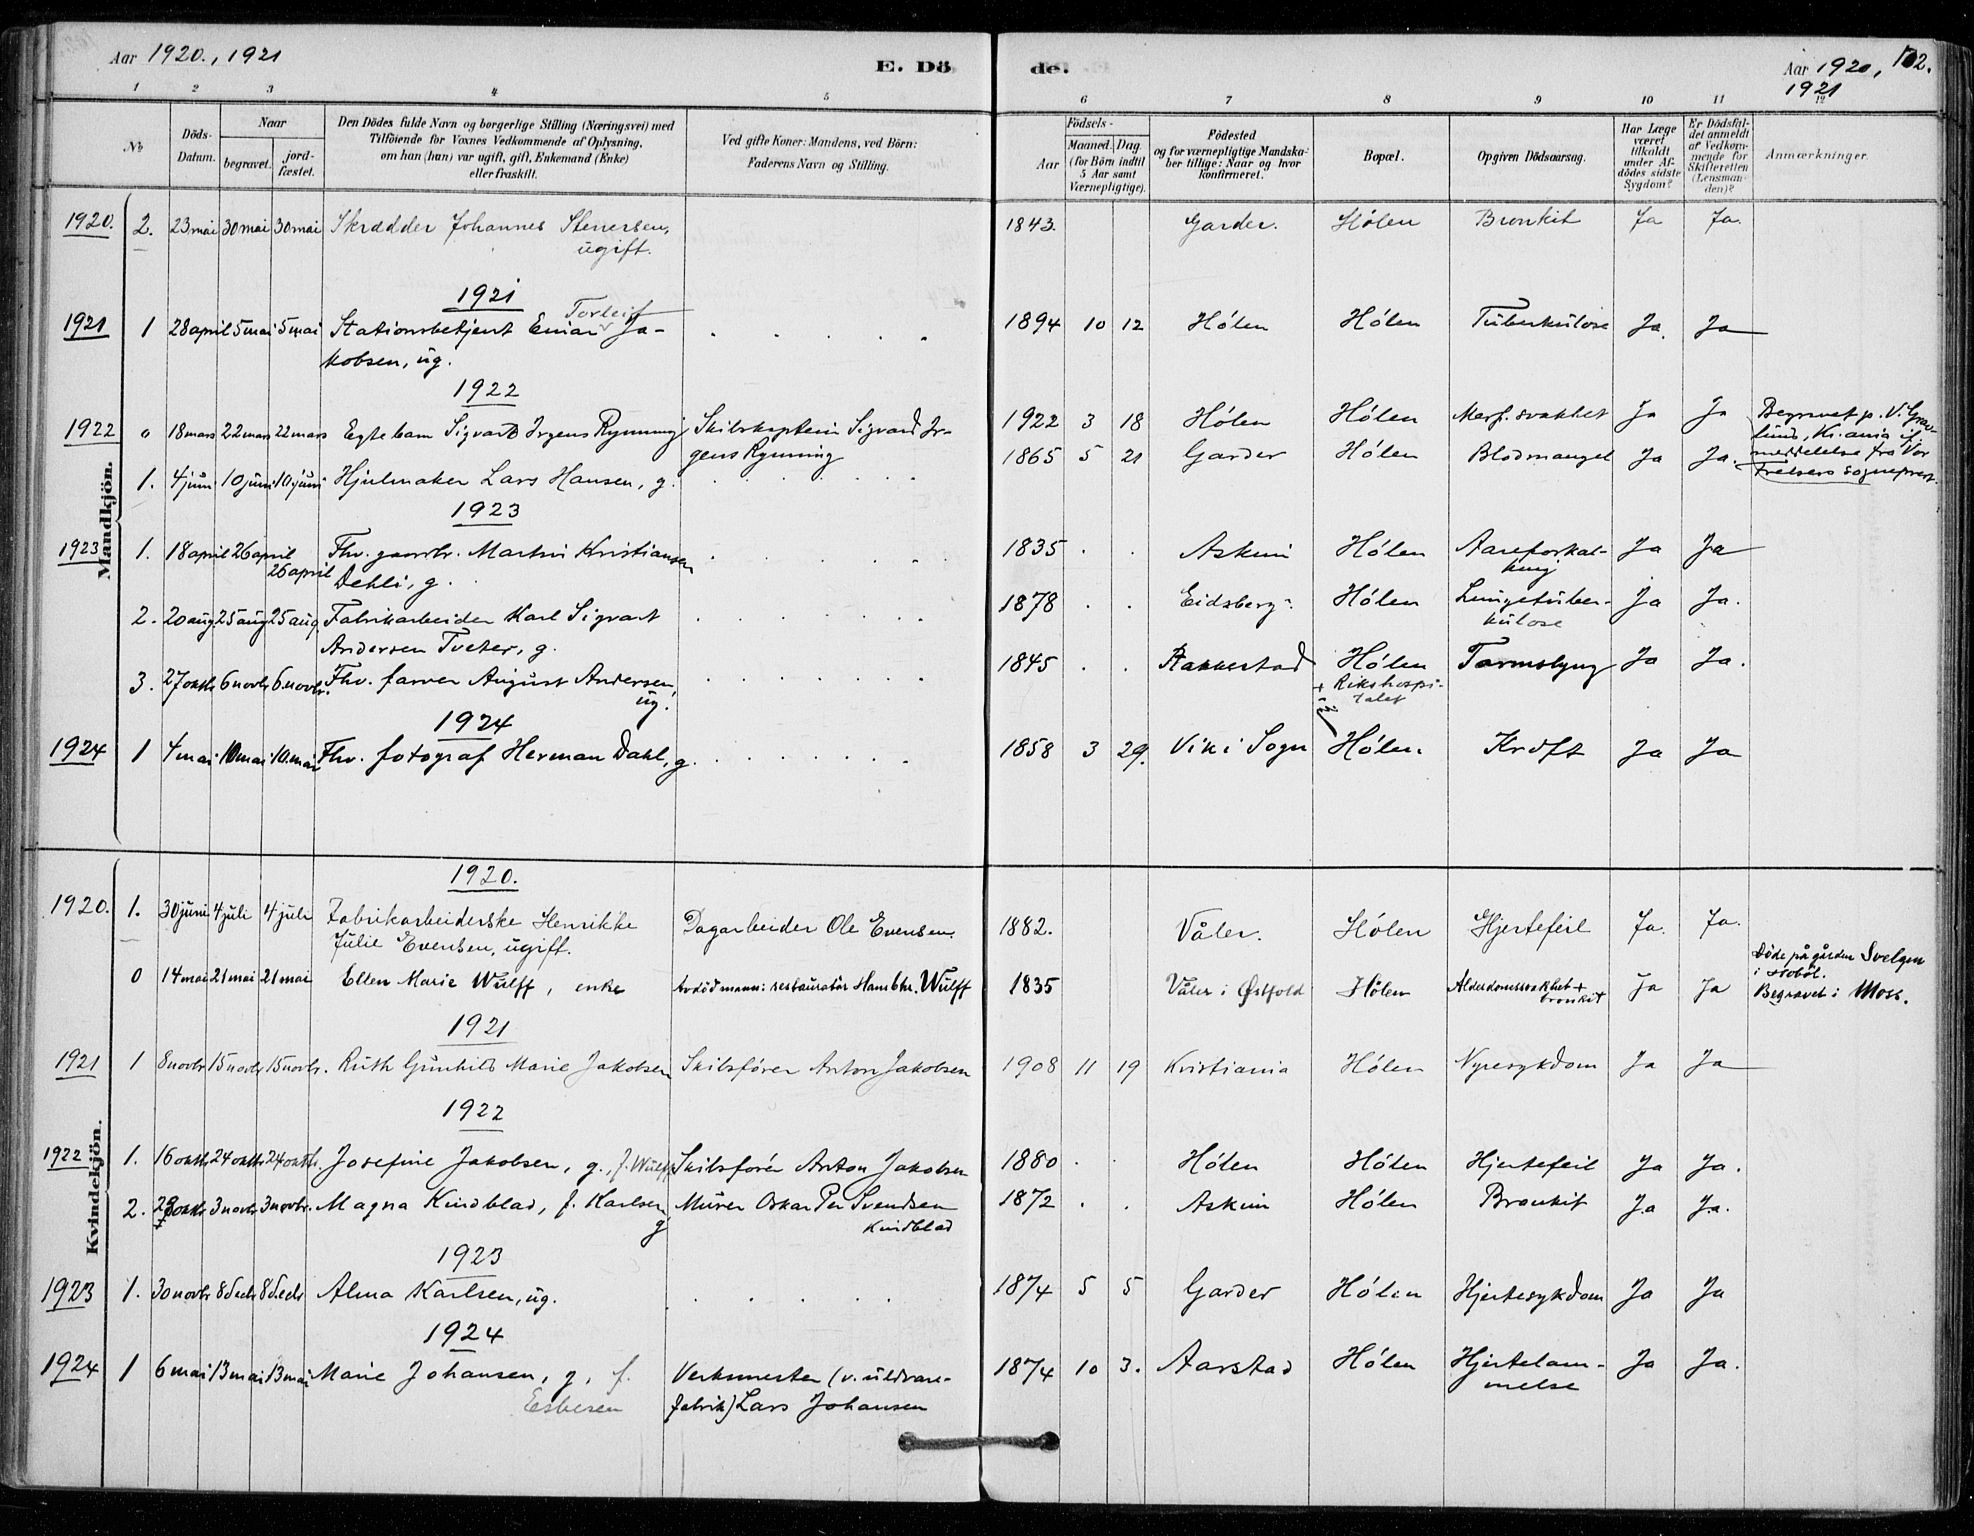 Aar 1920., 1921
E. Dö
de.
Aar 1920, 102.
1921
1 2 3 4 5 6 7 8 9 10 11 12
№
Döds-
Datum.
Naar
begravet.
jord-
fæstet.
Den Dödes fulde Navn og borgerlige Stilling (Næringsvei) med
Tilföiende for Voxnes Vedkommende af Oplysning,
om han (hun) var ugift, gift, Enkemand (Enke)
eller fraskilt.
Ved gifte Koner: Mandens, ved Börn:
Faderens Navn og Stilling.
Födsels-
Aar
Maaned. Dag.
(for Börn indtil
5 Aar samt
Værnepligtige).
Födested
og for værnepligtige Mandska-
ber tillige: Naar og hvor
konfirmeret.
Bopæl.
Opgiven Dödsaarsag.
Har Læge
været
tilkaldt
under Af-
dödes sidste
Sygdom?
Er Dödsfal-
det anmeldt
af Vedkom-
mende for
Skifteretten
(Lensman-
den)?
Anmærkninger.
Mandkjön.
1920. 2. 23 mai 30 mai 30 mai Skrædder Johannes Stenersen, 1843. Garder. Hölen Bronkit Ja Ja.
ugift.
1921
Torleif
1921 1 28 april 5 mai 5 mai Stationsbetjent Einar Ja- 1894 10 12 Hölen Hölen Tuberkulose Ja. Ja
kobsen, ug.
1922
1922 0 18 mars 22 mars 22 mars Egte barn Sigvard Irgens Rynning Skibskaptein Sigvard Ir- 1922 3 18 Hölen Hölen Medf. svakhet Ja Ja Begravet p. V. Grav-
gens Rynning
lund, Kr.ania if.
meddelelse fra Vor
Frelsers sogneprest.
1. 4 juni 10 juni 10 juni Hjulmaker Lars Hansen, g. 1865 5 21 Garder Hölen Blodmangel Ja Ja.
1923
1923 1. 18 april 26 april Fhv. gaardbr. Martin Kristiansen 1835 Askim Hölen Aareforkal- Ja Ja
26 april Dehli, g. kning
2. 20 aug 25 aug 25 aug. Fabrikarbeider Karl Sigvart 1878 Eidsberg Hölen Lungetuber- Ja Ja.
Andersen Tveter, g. kulose
3. 27 oktb 6 novbr 6. novbr. Fhv. farver August Andersen, 1845 Rakkestad Hölen Tarmslyng Ja Ja.
ug. + Rikshospi-
talet
1924
1924 1 4 mai 10 mai 10. mai Fhv. fotograf Herman Dahl, g. 1858 3 29. Vik i Sogn Hölen Kræft Ja Ja
Kvindekjön.
1920.
1920. 1. 30 juni 4 juli 4 juli Fabrikarbeiderske Henrikke Dagarbeider Ole Evensen. 1882. Våler. Hölen Hjertefeil Ja. Ja.
Julie Evensen, ugift.
0 14 mai 21 mai 21 mai Ellen Marie Wulff, enke Avdöd mann: restauratör Hans Chr. Wulff 1835 Våler i Østfold Hölen Alderdomssvakhet + Ja Ja Döde på gården Svelgen
bronkit
i Hobøl.
Begravet i Moss.
1921
1921 1 8 novbr 15 novbr 15 novbr. Ruth Gunhild Marie Jakobsen Skibsförer Anton Jakobsen 1908 11 19 Kristiania Hölen Nyresykdom Ja Ja
1922
1922 1. 16 oktb 24 oktb 24 oktb. Josefine Jakobsen, g., f. Wulff Skibsförer Anton Jakobsen 1880 Hölen Hölen Hjertefeil Ja Ja.
2. oktb 3 novbr 3 novbr. Magna Kindblad, f. Karlsen Murer Oskar Per Svendsen 1872 Askim Hölen Bronkit Ja Ja.
g Kindblad
1923
1923 1. 30 novbr 8 decb 8 decb Alma Karlsen, ug. 1874 5 5 Garder Hölen Hjertesykdom Ja Ja
1924
1924 1 6 mai 13 mai 13 mai Marie Johansen, g, f. Verksmester (v. uldvare- 1874 10 3. Aarstad Hölen Hjertelam- Ja Ja.
Esbesen fabrik) Lars Johansen melse